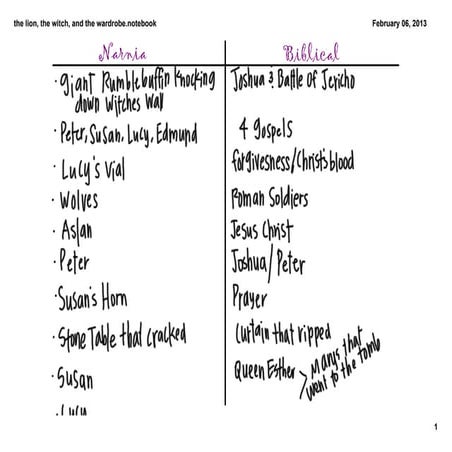 the lion, the witch, and the wardrobe.notebook February 06, 2013
Narnia Biblical
· Giant Rumblebuffin knocking down witches wall Joshua & Battle of Jericho
· Peter, Susan, Lucy, Edmund 4 gospels
· Lucy's vial forgivesness/Christ's blood
· Wolves Roman Soldiers
· Aslan Jesus Christ
· Peter Joshua/Peter
· Susan's Horn Prayer
· Stone Table that cracked Curtain that ripped
· Susan Queen Esther > Marys that went to the tomb
· Lucy
1